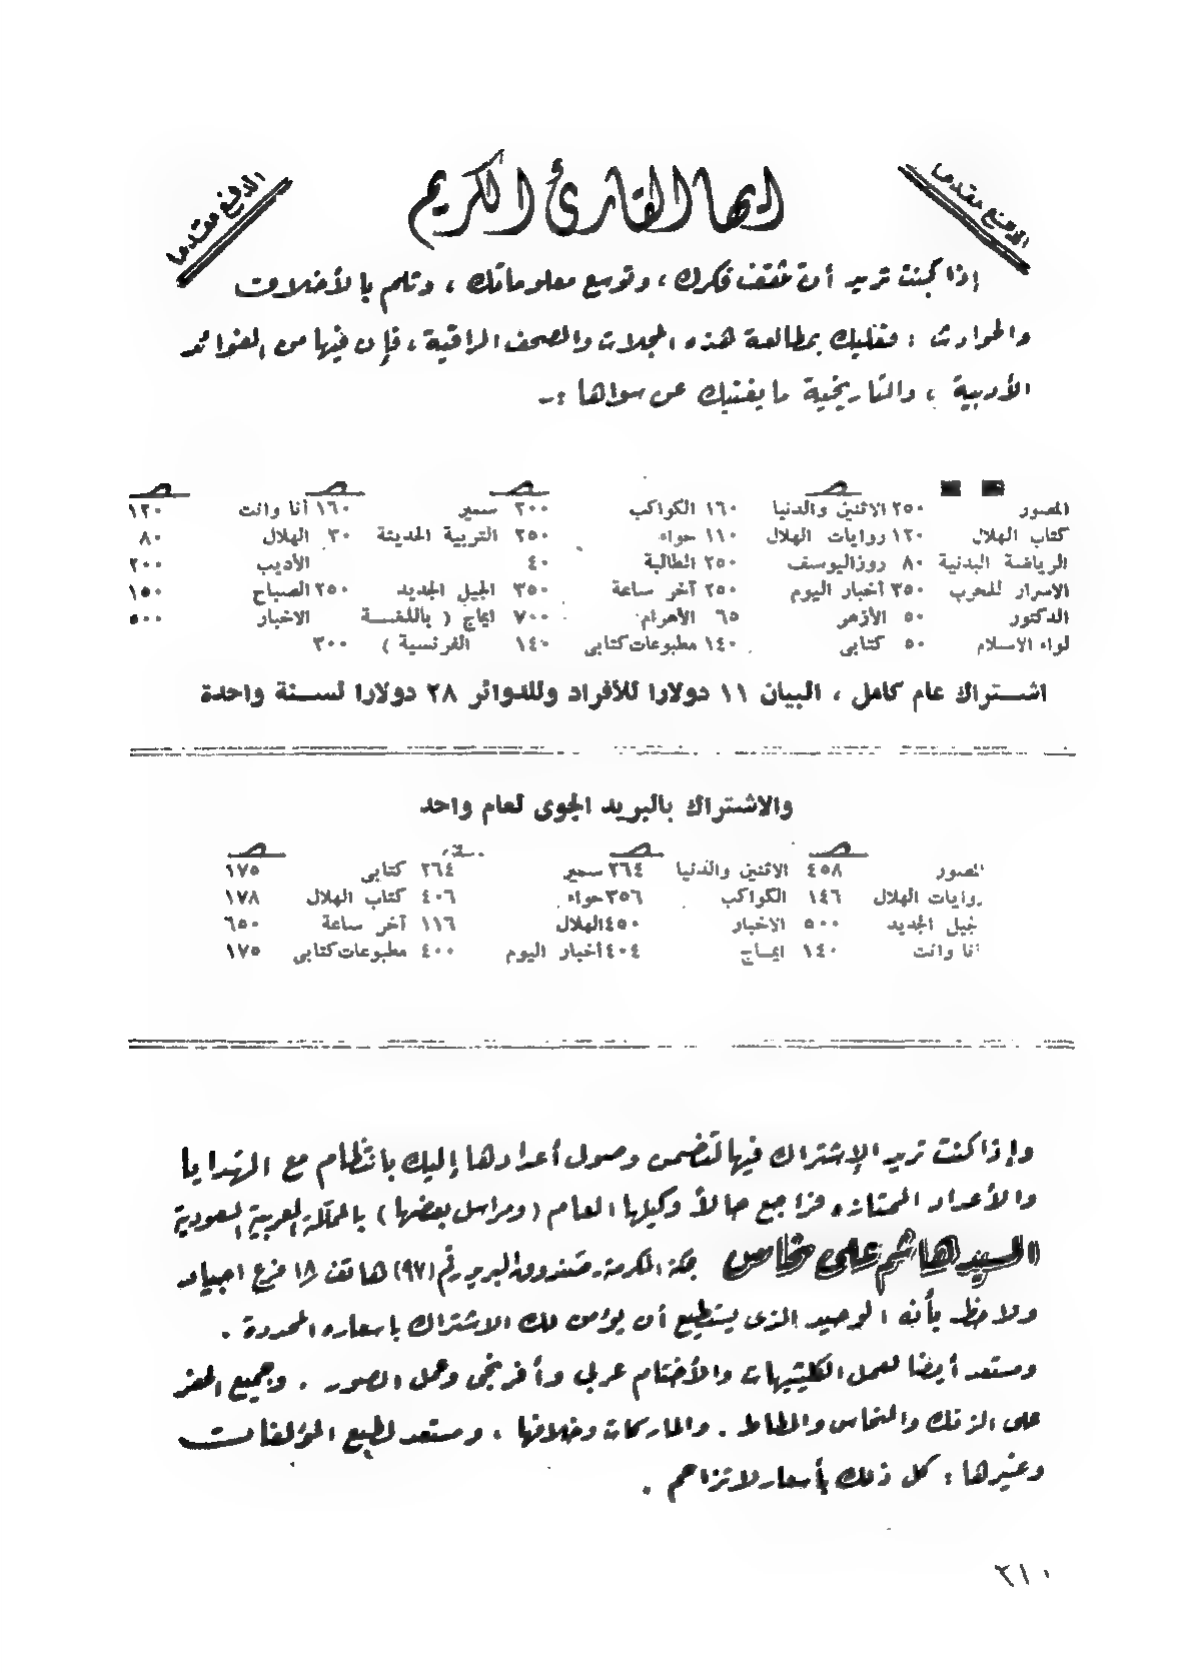 الدفع مقدما
ايها القارئ الكريم
الدفع مقدما
إذا كنت تريد أن تثقف فكرك، وتوسع معلوماتك، وتلم بالأخلاق
والحوادث: فعليك بمطالعة هذه المجلات والصحف الراقية، فإن فيها من الفوائد
الأدبية، والتاريخية ما يغنيك عن سواها :ـ
المصور ٢٥٠ الاثنين والدنيا ١٦٠ الكواكب ٢٠٠ سمير ١٦٠ أنا وانت ١٢٠
كتاب الهلال ١٢٠ روايات الهلال ١١٠ حواء ٢٥٠ التربية الحديثة ٣٠ الهلال ٨٠
الرياضة البدنية ٨٠ روزاليوسف ٢٥٠ الطالبة ٤٠ الأديب ٢٠٠
الاسرار للحرب ٣٥٠ أخبار اليوم ٢٥٠ آخر ساعة ٣٥٠ الجيل الجديد ٢٥٠ الصباح ١٥٠
الدكتور ٥٠ الأزهر ٦٥ الأهرام ٧٠٠ ايماج ( باللغــة الاخبار ٥٠٠
لواء الاسلام ٥٠ كتابى ١٤٠ مطبوعات كتابى ١٤٠ الفرنسية ) ٣٠٠
اشــتراك عام كامل ، البيان ١١ دولارا للأفراد وللدوائر ٢٨ دولارا لســنة واحدة
والاشتراك بالبريد الجوى لعام واحد
المصور ٤٥٨ الاثنين والدنيا ٢٦٤ سمير ٢٦٤ كتابى ١٧٥
روايات الهلال ١٤٦ الكواكب ٣٥٦ حواء ٤٠٦ كتاب الهلال ١٧٨
الجيل الجديد ٥٠٠ الاخبار ٤٥٠ الهلال ١١٦ آخر ساعة ٦٥٠
أنا وانت ١٤٠ ايمــاج ٤٠٤ أخبار اليوم ٤٠٠ مطبوعات كتابى ١٧٥
وإذا كنت تريد الإشتراك فيها لتضمن وصول أعدادها إليك بانتظام مع الهدايا
والأعداد الممتازه فراجع حالاً وكيلها العام (ومراسل بعضها) بالمملكة العربية السعودية
السيد هاشم على نحاس بمكة المكرمة ـ صندوق البريد رقم (٩٧) هاتف ١٨ فرع اجياد
ولاحظ بأنه الوحيد الذى يستطيع أن يؤمن لك الاشتراك باسعاره المحدودة .
ومستعد أيضا لعمل الكليشيهات والأختام عربى وأفرنجى وعمل الصور . وجميع الحفر
على الزنك والنحاس والمطاط . والماركات وخلافها ، ومستعد لطبع المؤلفات
وغيرها : كل ذلك بأسعار لا تزاحم .
٢١٠